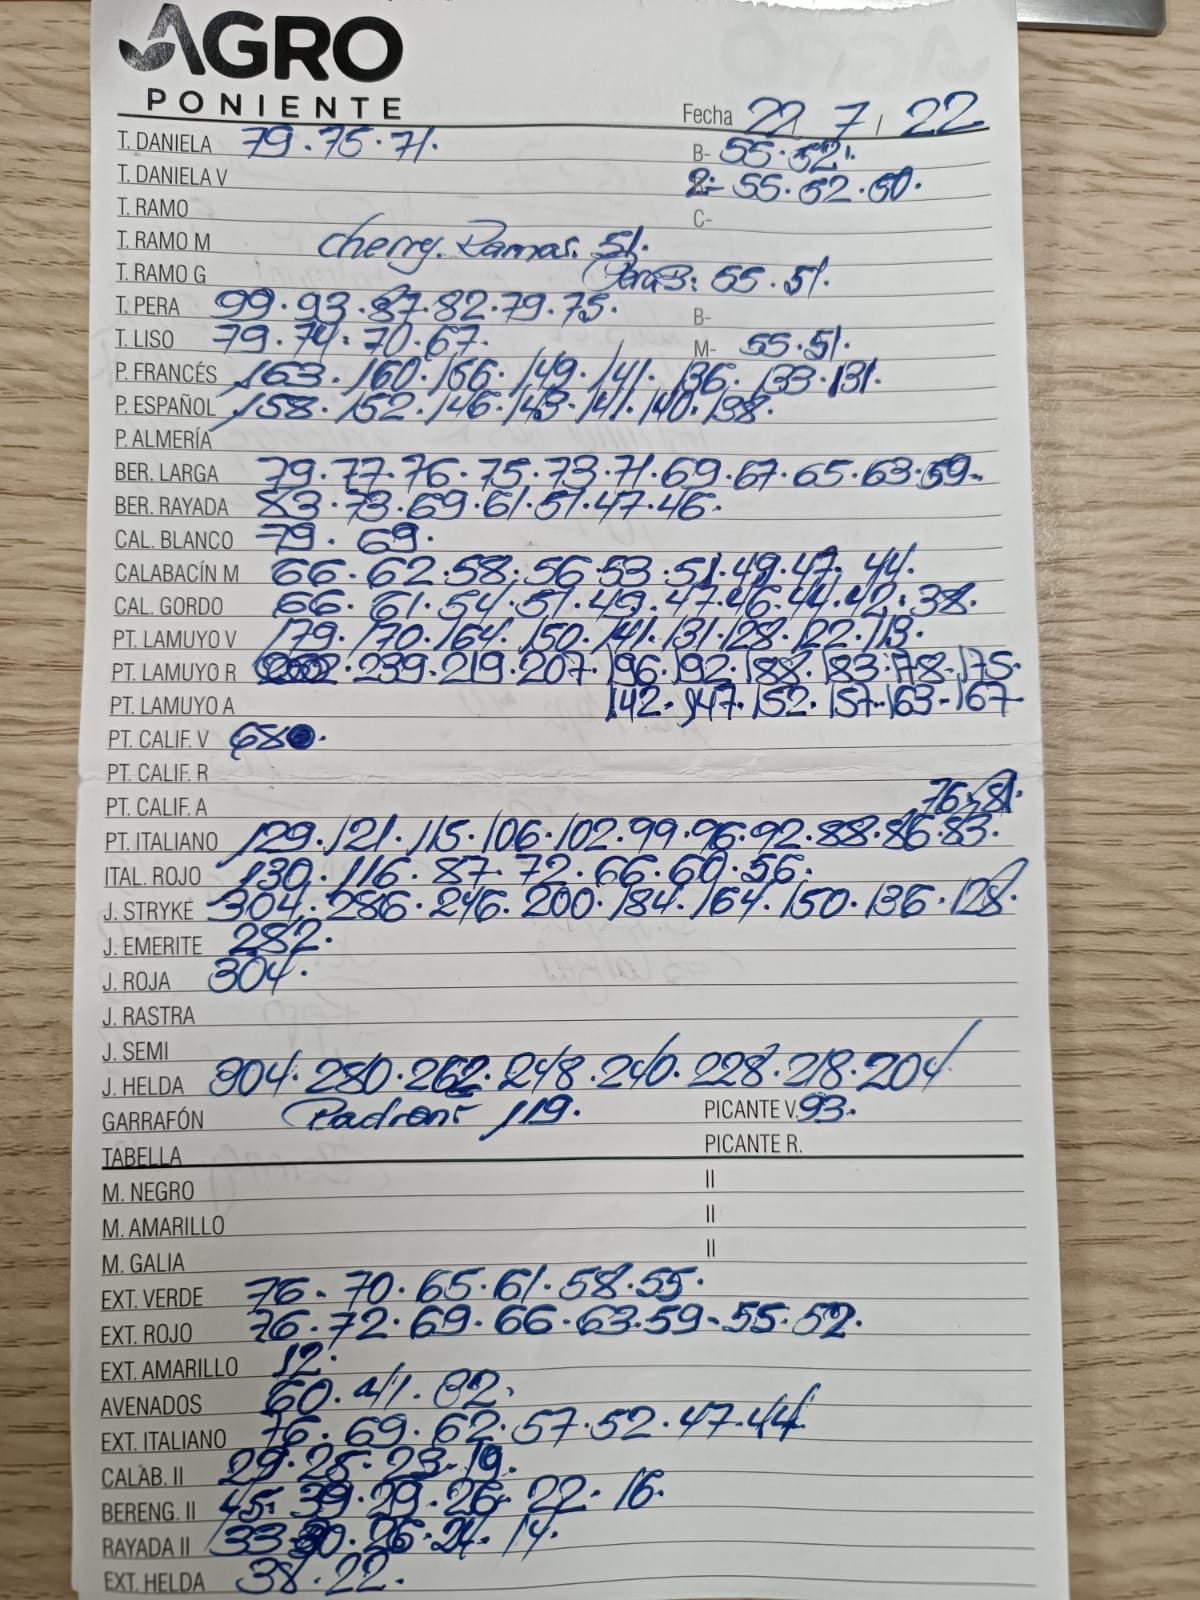 AGRO
PONIENTE
Fecha 22 / 7 / 22
T. DANIELA 79·75·71· B- 55·52·
T. DANIELA V 2- 55·52·50·
T. RAMO C-
T. RAMO M cherry. Ramas. 51·
T. RAMO G Pera B: 55·51·
T. PERA 99·93·87·82·79·75· B-
T. LISO 79·74·70·67· M- 55·51·
P. FRANCÉS 163·160·156·149·141·136·133·131·
P. ESPAÑOL 158·152·146·143·141·140·138·
P. ALMERÍA
BER. LARGA 79·77·76·75·73·71·69·67·65·63·59-
BER. RAYADA 83·73·69·61·51·47·46·
CAL. BLANCO 79·69·
CALABACÍN M 66·62·58·56·53·51·49·47·44·
CAL. GORDO 66·61·54·51·49·47·46·44·42·38·
PT. LAMUYO V 179·170·164·150·141·131·128·122·113·
PT. LAMUYO R ·239·219·207·196·192·188·183·178·175·
PT. LAMUYO A 142·147·152·157·163·167·
PT. CALIF. V 68·
PT. CALIF. R
PT. CALIF. A 76·81·
PT. ITALIANO 129·121·115·106·102·99·96·92·88·86·83·
ITAL. ROJO 130·116·87·72·66·60·56·
J. STRYKE 304·286·246·200·184·164·150·136·128·
J. EMERITE 282·
J. ROJA 304·
J. RASTRA
J. SEMI
J. HELDA 304·280·262·248·240·228·218·204
GARRAFÓN Padron: 119· PICANTE V. 93·
TABELLA PICANTE R.
M. NEGRO II
M. AMARILLO II
M. GALIA II
EXT. VERDE 76·70·65·61·58·55·
EXT. ROJO 76·72·69·66·63·59·55·52·
EXT. AMARILLO 12·
AVENADOS 60·41·32·
EXT. ITALIANO 76·69·62·57·52·47·44
CALAB. II 29·25·23·19·
BERENG. II 45·39·29·26·22·16·
RAYADA II 33·30·26·24·14·
EXT. HELDA 38·22·